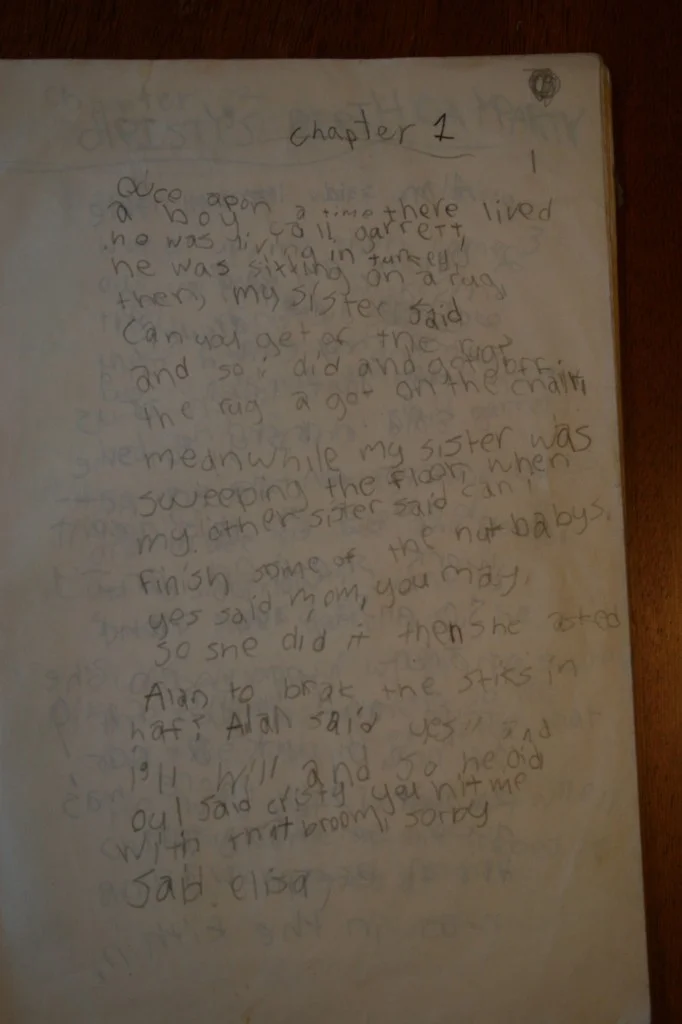 chapter 1
1
Once apon a time there lived
a boy call garrett,
he was living in turkey,
he was sitting on a rug,
then, my sister said
Can you get of the rug?
and so i did and got off
the rug a got on the chair,
meanwhile my sister was
sweeping the floor, when
my other sister said can i
finish some of the nut babys.
yes said mom, you may,
so she did it then she asted
Alan to brak the stiks in
haf; Alan said yes" and
I'll will and so he did
ou! said cristy you hit me
with that broom, sorby
said elisa,